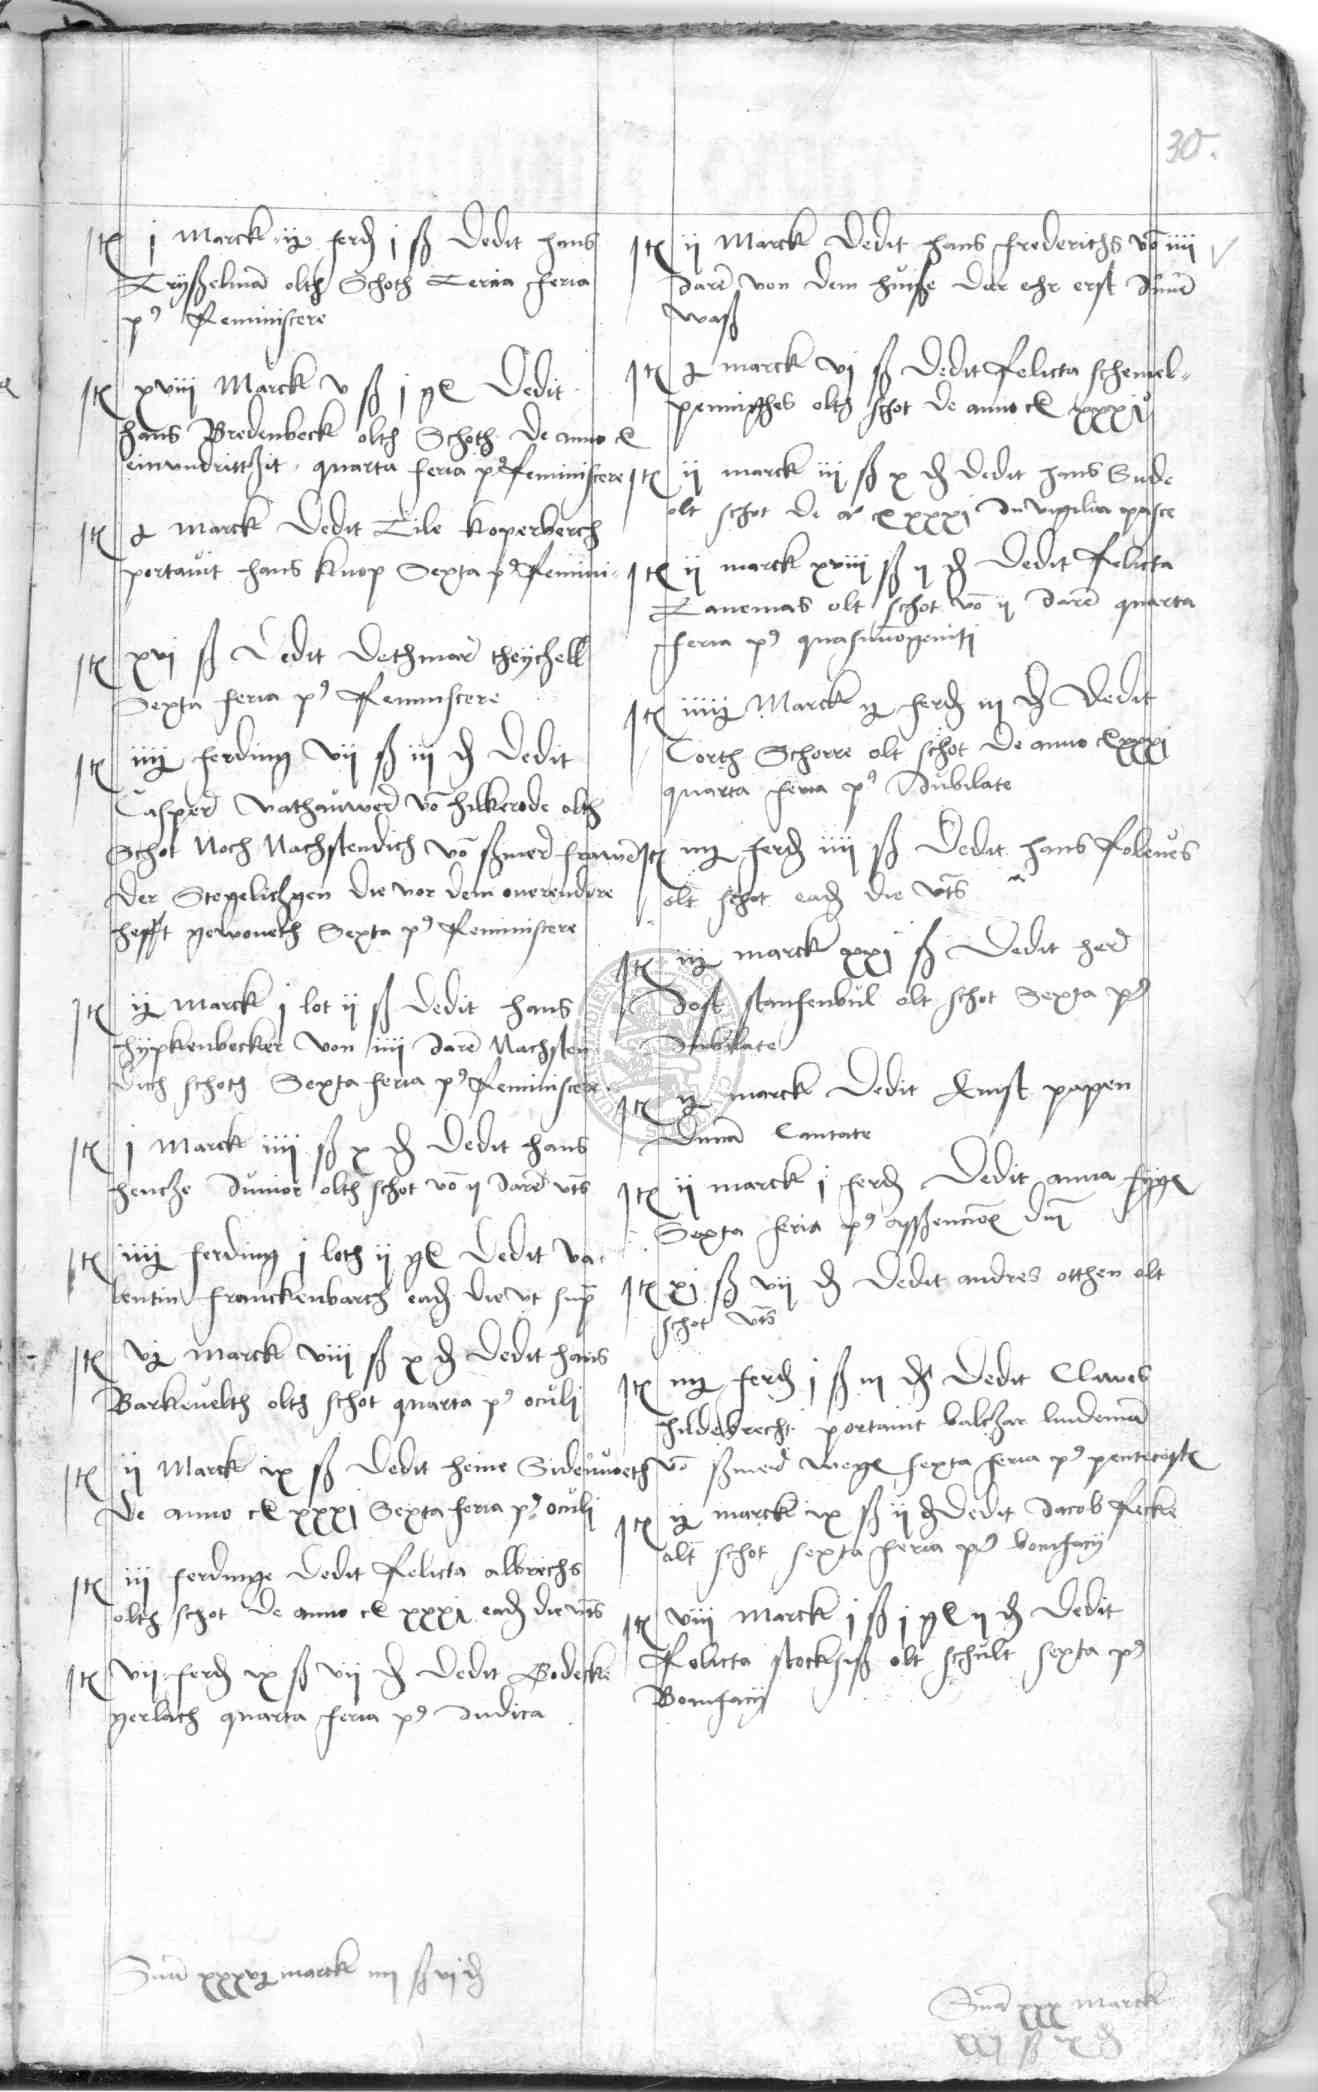 30.
Itē j Marck ij ferd j ß Dedit hans
Trysselmā olth Schoth Tercia feria
pꝰ Reminiscere
Itē xviij Marck v ß j gl Dedit
hans Bredenbeck olth Schoth De anno
einundrittzit quarta feria pꝰ Reminiscere
Itē marck Dedit Tile Koperberch
portauit hans Knop Sexta pꝰ Remini-
Itē xvj ß Dedit Dethmar theychell
Sexta feria pꝰ Reminiscere
Itē iiij ferding vij ß iij d Dedit
Casper vathauwer vō hilkerode olth
Schot Noch Nachstendich vō ßiner frawē
Der Stegelitzen Die vor dem
hefft gewoneth Sexta pꝰ Reminiscere
Itē ij Marck j lot ij ß Dedit hans
hypkenbecker von iiij Jarē Nachsten
Dich schoth Sexta feria pꝰ Reminiscere
Itē j Marck iiij ß x d Dedit hans
hencze Junior olth schot vō ij Jarē vts
Itē iiij ferding j loth ij gl Dedit va-
lentin franckenbarch ead die vt supra
Itē vj marck viij ß x d Dedit hans
Barkeuelth olth schot quarta pꝰ oculi
Itē ij Marck ix ß Dedit heine Sidenwoeth
De anno xxxj Sexta feria pꝰ oculi
Itē iij ferdinge Dedit Relicta albrechs
olth schot De anno xxxj ead die vts
Itē vij ferd ix ß vij d Dedit Godeck
gerlach quarta feria pꝰ Judica
Sum̄a xxxvj marck iiij ß vj d
Itē ij Marck Dedit hans frederichs vō iiij
Jarē von dem huise Dar ehr erst Inne
waß
Itē marck vj ß Dedit Relicta schemel-
pennighes olth schot de anno xxxj
Itē ij marck iij ß x d Dedit hans Sude
olt schot de xxxj In vigilia pasce
Itē ij marck xviij ß ij d Dedit Relicta
Tanemas olt schot vō ij Jarē quarta
feria pꝰ quasimogeniti
Itē iiij Marck ij ferd iij d Dedit
Corth Schorre olt schot De anno xxxj
quarta feria pꝰ Jubilate
Itē ferd iiij ß Dedit hans Roleues
olt schot ead die vts
Itē iij marck xxj ß Dedit her
Jost stausenbul olt schot Sexta pꝰ
Jubilate
Itē ij marck Dedit Ernst papen
Cantate
Itē ij marck j ferd Dedit anna fyge
Sexta feria pꝰ assencioē Dni
Itē xj ß vij d Dedit andres otthen olt
schot vts
Itē ferd j ß iij d Dedit Clawes
hildebrecht portauit baltzar lindemā
vō ßiner wege sexta feria pꝰ pentecoste
Itē ij marck ix ß ij d Dedit Jacob Recke
olt schot sexta feria pꝰ bonifacij
Itē viij Marck j ß j gl ij d Dedit
Relicta stockhuß olt schult sexta pꝰ
Bonifacij
Sum̄a xxx Marck
xxj ß x d